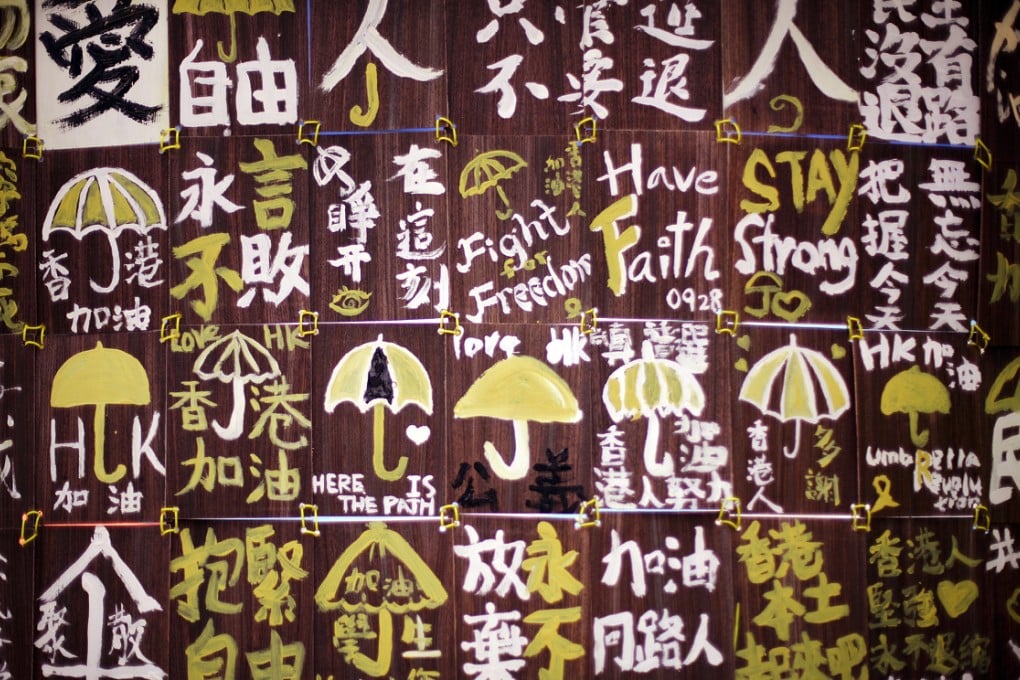 愛
自由
人
只
管
邁
不
要
退
人
民主
沒有
退路
香港
加油
永不
言敗
睜
開
在
這
刻
香港人
加油
Fight
for
Freedom
Have
Faith
0928
STAY
Strong
無忘今天
把握今天
HK
加油
Love HK
香港
加油
HERE IS
THE PATH
love HK
公義
香港人
加油
努力
香港人
多謝
HK 加油
Umbrella
Revolu
tion
聚散
抱緊
自由
加油
學生
永不
放棄
加油
同路人
香港
本土
起來吧
香港人
堅強
永不退縮